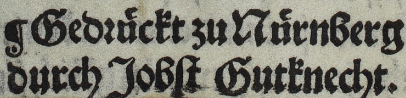 ¶ Gedꝛuͤckt zu Nuͤrnberg
durch Jobſt Gutknecht.